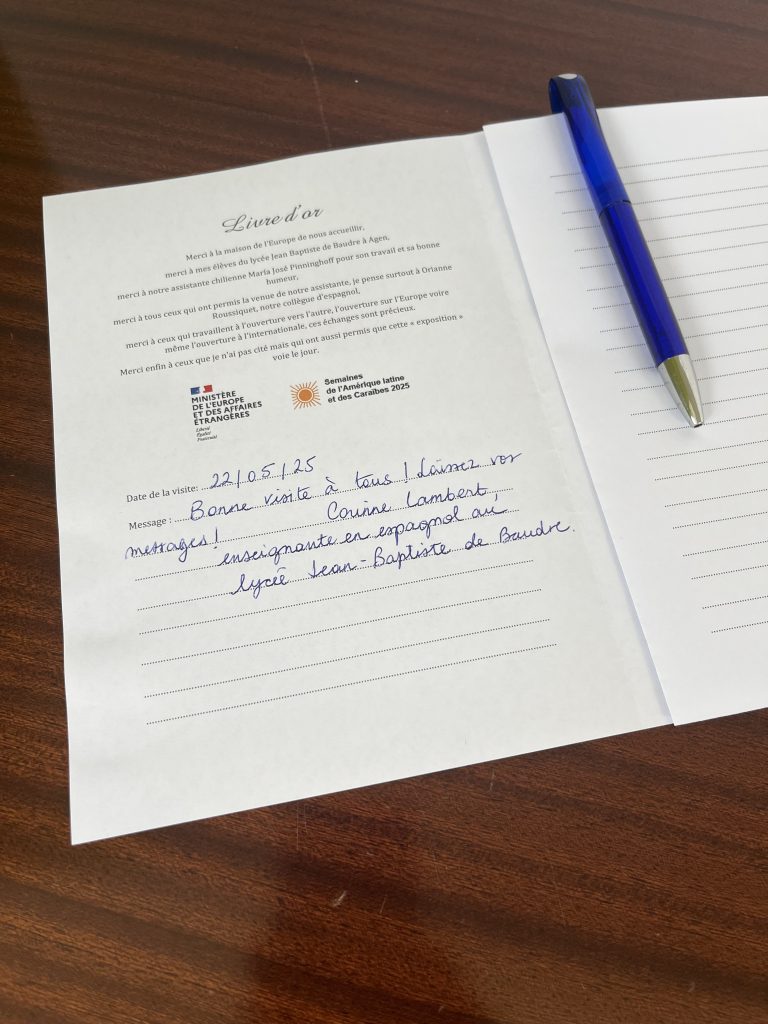 Livre d'or
Merci à la maison de l'Europe de nous accueillir,
merci à mes élèves du lycée Jean Baptiste de Baudre à Agen,
merci à notre assistante chilienne María José Pinninghoff pour son travail et sa bonne
humeur,
merci à tous ceux qui ont permis la venue de notre assistante, je pense surtout à Orianne
Roussiquet, notre collègue d'espagnol,
merci à ceux qui travaillent à l'ouverture vers l'autre, l'ouverture sur l'Europe voire
même l'ouverture à l'internationale, ces échanges sont précieux.
Merci enfin à ceux que je n'ai pas cité mais qui ont aussi permis que cette « exposition »
voie le jour.
MINISTÈRE
DE L'EUROPE
ET DES AFFAIRES
ÉTRANGÈRES
Liberté
Égalité
Fraternité
Semaines
de l'Amérique latine
et des Caraïbes 2025
Date de la visite: 22/05/25
Message : Bonne visite à tous ! Laissez vos
messages !
Corinne Lambert,
enseignante en espagnol au
lycée Jean-Baptiste de Baudre.